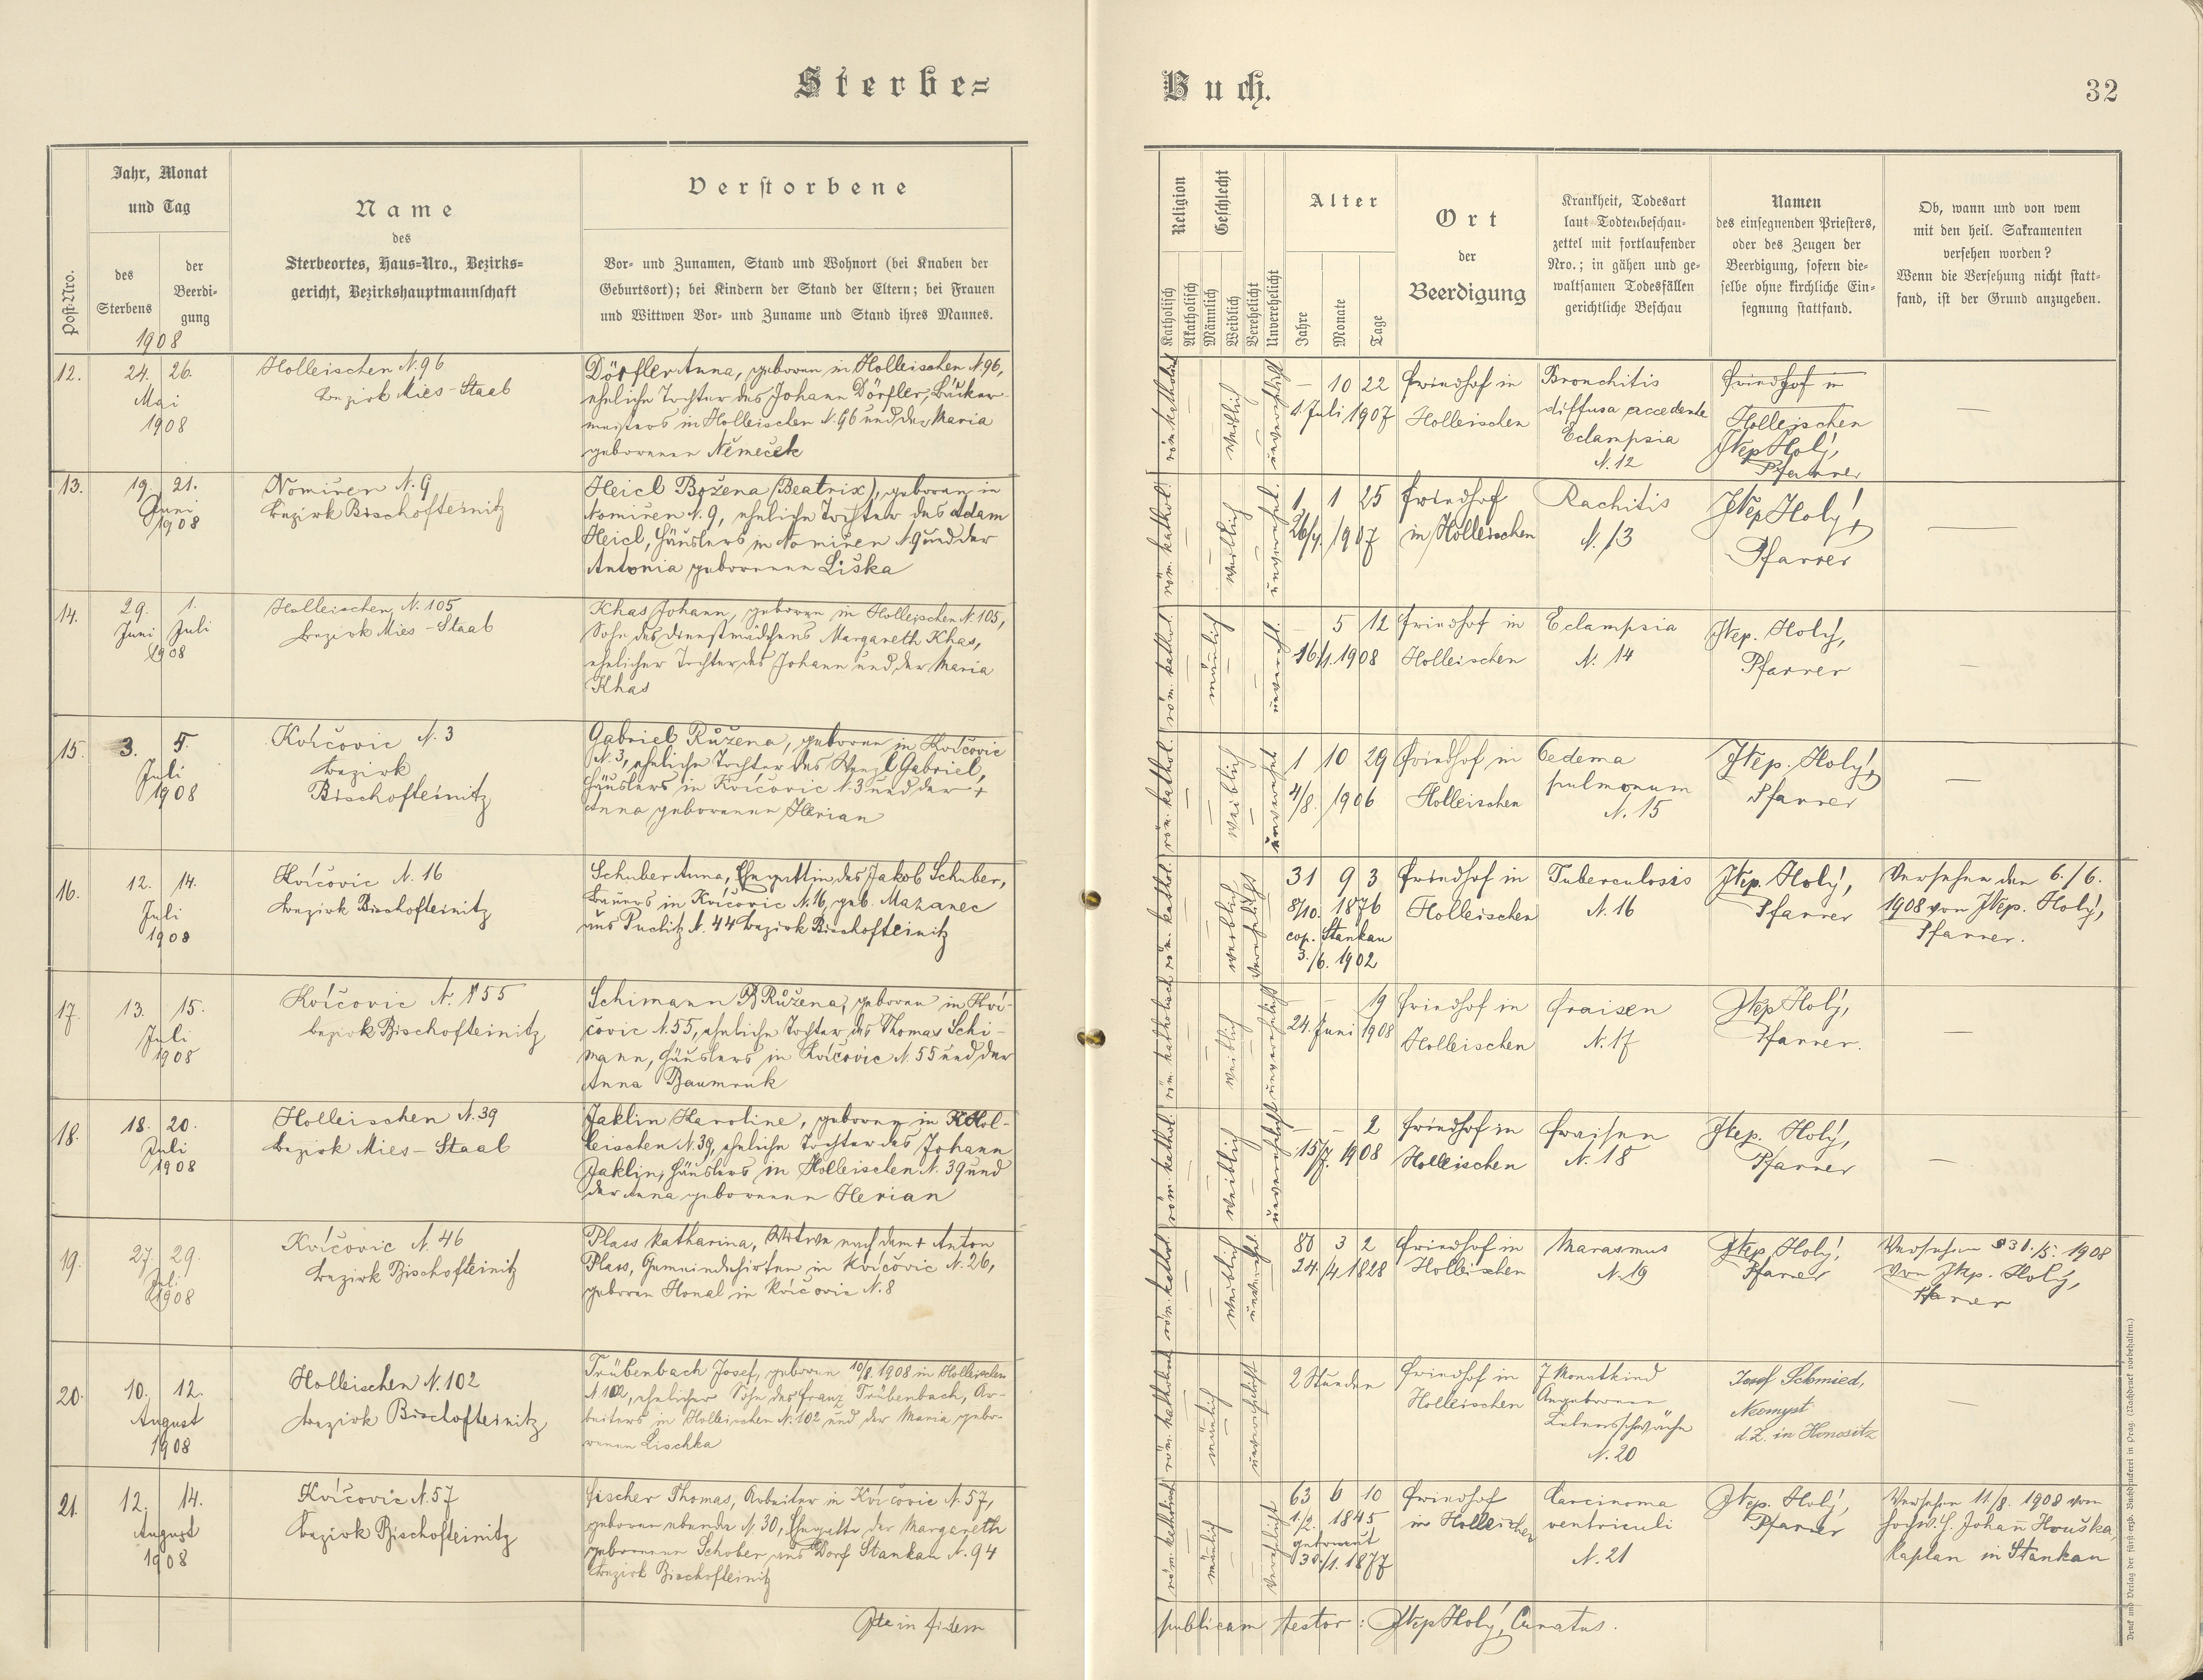 Sterbe=
Buch.
32
Post=Nro.
Jahr, Monat
und Tag
des
Sterbens
der
Beerdi=
gung
1908
Name
des
Sterbeortes, Haus=Nro., Bezirks=
gericht, Bezirkshauptmannschaft
Verstorbene
Vor= und Zunamen, Stand und Wohnort (bei Knaben der
Geburtsort); bei Kindern der Stand der Eltern; bei Frauen
und Wittwen Vor= und Zuname und Stand ihres Mannes.
Religion
Katholisch
Akatholisch
Geschlecht
Männlich
Weiblich
Verehelicht
Unverehelicht
Alter
Jahre
Monate
Tage
Ort
der
Beerdigung
Krankheit, Todesart
laut Todtenbeschau=
zettel mit fortlaufender
Nro.; in gähen und ge=
waltsamen Todesfällen
gerichtliche Beschau
Namen
des einsegnenden Priesters,
oder des Zeugen der
Beerdigung, sofern die=
selbe ohne kirchliche Ein=
segnung stattfand.
Ob, wann und von wem
mit den heil. Sakramenten
versehen worden?
Wenn die Versehung nicht statt=
fand, ist der Grund anzugeben.
12.
24. 26.
Mai
1908
Holleischen N. 96
Bezirk Mies-Staab
Dörfler Anna, geboren in Holleischen N. 96,
eheliche Tochter des Johann Dörfler, Bäcker-
meisters in Holleischen N. 96 und der Maria
geborenen Němeček
röm. katholisch
weiblich
unverehelicht
— 10 22
1. Juli 1907
Friedhof in
Holleischen
Bronchitis
diffusa accedente
Eclampsia
N. 12
Friedhof in
Holleischen
JNep Holý,
Pfarrer
—
13.
19. 21.
Juni
1908
Nomiren N. 9
Bezirk Bischofteinitz
Heicl Božena (Beatrix), geboren in
Nomiren N. 9, eheliche Tochter des Adam
Heicl, Häuslers in Nomiren N. 9 und der
Antonia geborenen Liška
röm. kathol.
weiblich
unverehel.
1 1 25
26/4. 1907
Friedhof
in Holleischen
Rachitis
N. 13
JNep Holý,
Pfarrer
—
14.
29. 1.
Juni Juli
1908
Holleischen N. 105
Bezirk Mies-Staab
Khas Johann, geboren in Holleischen N. 105,
Sohn des Dienstmädchens Margareth Khas,
ehelicher Tochter des Johann und der Maria
Khas
röm. kathol.
mänlich
unverehl.
— 5 12
16/1. 1908
Friedhof in
Holleischen
Eclampsia
N. 14
JNep. Holý,
Pfarrer
—
15.
3. 5.
Juli
1908
Kvíčovic N. 3
Bezirk
Bischofteinitz
Gabriel Růžena, geboren in Kvíčovic
N. 3, eheliche Tochter des Wenzl Gabriel,
Häuslers in Kvíčovic N. 3 und der +
Anna geborenen Herian
röm. kathol.
weiblich
unverehel
1 10 29
4/8. 1906
Friedhof in
Holleischen
Oedema
pulmonum
N. 15
JNep. Holý,
Pfarrer
—
16.
12. 14.
Juli
1908
Kvíčovic N. 16
Bezirk Bischofteinitz
Schuber Anna, Ehegattin des Jakob Schuber,
Bauers in Kvíčovic N. 16, geb. Mazanec
aus Puclitz N. 44 Bezirk Bischofteinitz
röm. kathol.
weiblich
verehelicht
31 9 3
8/10. 1876
cop. Stankau
3./6. 1902
Friedhof in
Holleischen
Tuberculosis
N. 16
JNep. Holý,
Pfarrer
Versehen den 6./6.
1908 von JNep. Holý,
Pfarrer.
17.
13. 15.
Juli
1908
Kvíčovic N. 55
bezirk Bischofteinitz
Schimann Růžena, geboren in Kví-
čovic N. 55, eheliche Tochter des Thomas Schi-
mann, Häuslers in Kvíčovic N. 55 und der
Anna Baumruk
röm. katholisch
weiblich
unverehelicht
— — 19
24. Juni 1908
Friedhof in
Holleischen
Fraisen
N. 17
JNep Holý,
Pfarrer.
—
18.
18. 20.
Juli
1908
Holleischen N. 39
Bezirk Mies-Staab
Jaklin Karoline, geboren in Hol-
leischen N. 39, eheliche Tochter des Johann
Jaklin, Häuslers in Holleischen N. 39 und
der Anna geborenen Herian
röm. kathol.
weiblich
unverehelicht
— — 2
15/7. 1908
Friedhof in
Holleischen
Fraisen
N. 18
JNep. Holý,
Pfarrer
—
19.
27. 29.
Juli
1908
Kvíčovic N. 46
Bezirk Bischofteinitz
Plass Katharina, Witwe nach dem + Anton
Plass, Gemeindehirten in Kvíčovic N. 26,
geboren Honal in Kvíčovic N. 8
röm. kathol.
weiblich
80 3 2
24./4 1828
Friedhof in
Holleischen
Marasmus
N. 19
JNep. Holý,
Pfarrer
Versehen 30./5. 1908
von JNep. Holý,
Pfarrer
20.
10. 12.
August
1908
Holleischen N. 102
Bezirk Bischofteinitz
Trübenbach Josef, geboren 10/8. 1908 in Holleischen
N 102, ehelicher Sohn des Franz Trübenbach, Ar-
beiters in Holleischen N. 102 und der Maria gebo-
renen Lischka
röm. katholisch
mänlich
unverehelicht
2 Stunden
Friedhof in
Holleischen
7 Monatkind
Angeborene
Lebensschwäche
N. 20
Josef Schmied,
Neomyst
d. Z. in Honositz
—
21.
12. 14.
August
1908
Kvíčovic N. 57
Bezirk Bischofteinitz
Fischer Thomas, Arbeiter in Kvíčovic N. 57,
geboren ebenda N. 30, Ehegatte der Margareth
geborenen Schober aus Dorf Stankau N. 94
Bezirk Bischofteinitz
röm. katholisch
mänlich
verehelicht
63 6 10
1/2. 1845
getraut
30./1. 1877
Friedhof
in Holleischen
Carcinoma
ventriculi
N. 21
JNep. Holý,
Pfarrer
Versehen 11/8. 1908 vom
hochw. H. Johan̄ Houška,
Kaplan in Stankau
in fidem
publicam testor: JNep Holý, Curatus.
Druck und Verlag der fürst=erzb. Buchdruckerei in Prag. (Nachdruck vorbehalten.)